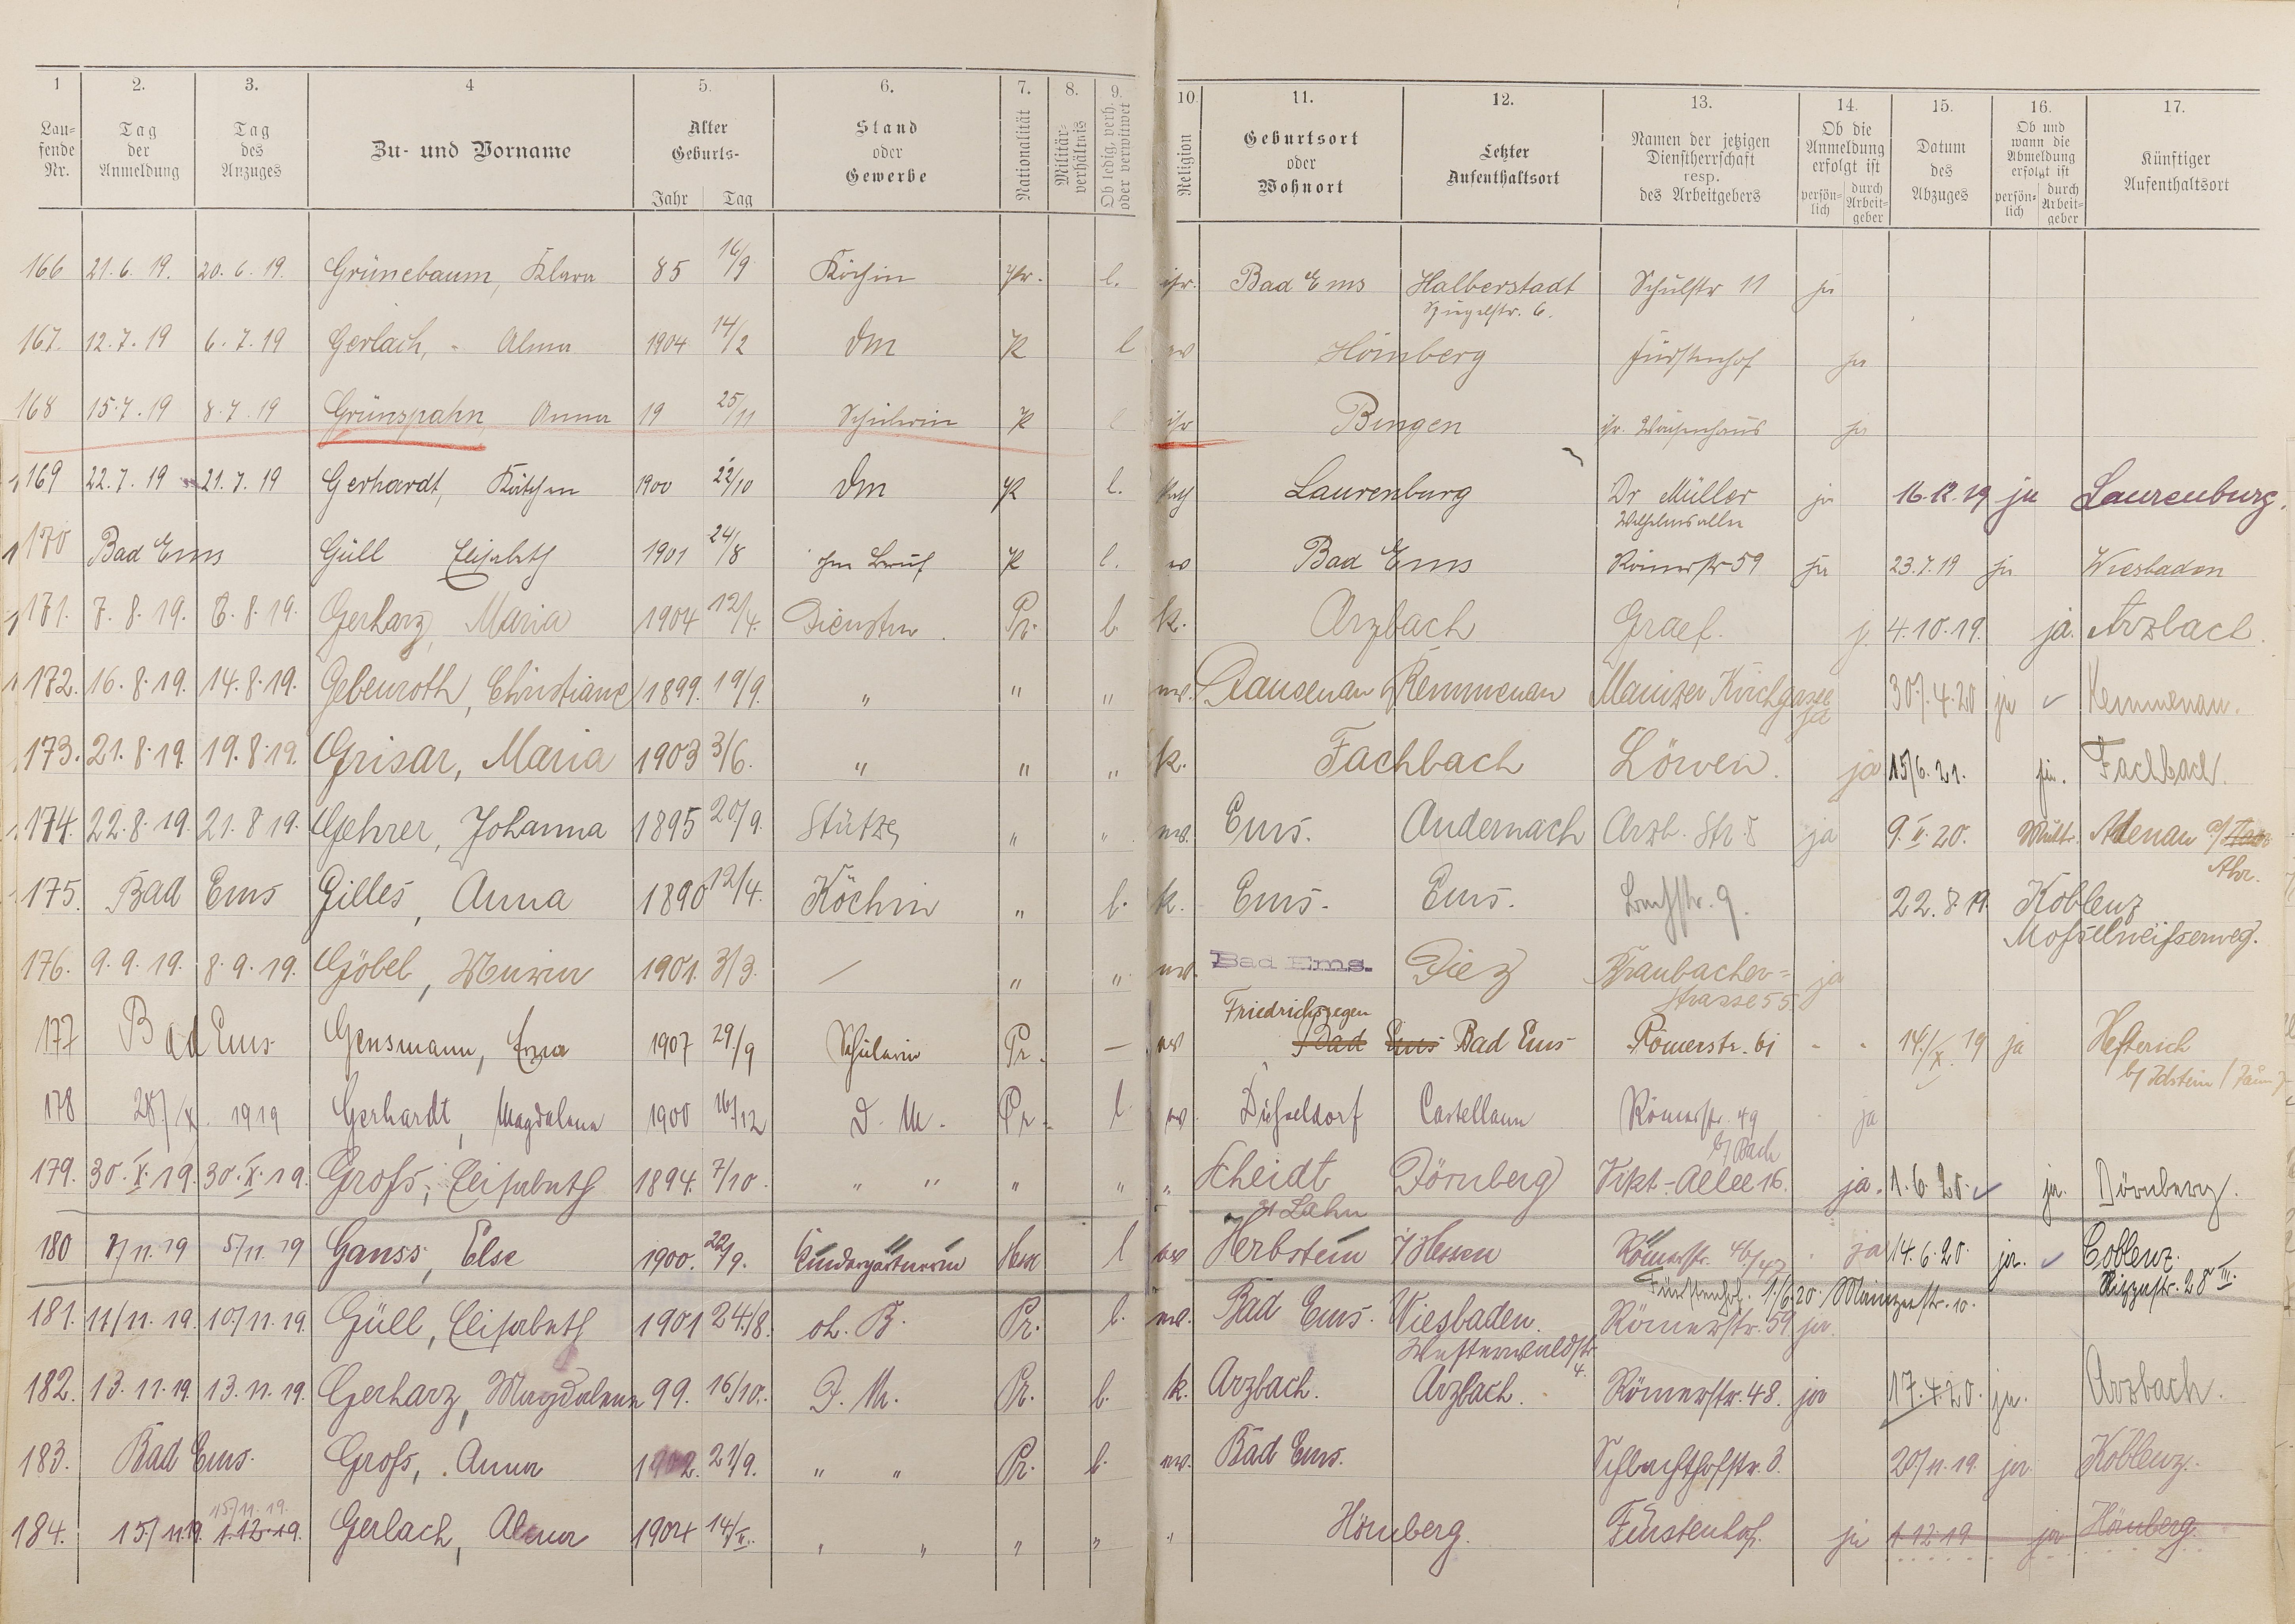 1 2. 3. 4 5. 6. 7. 8. 9. 10. 11. 12. 13. 14. 15. 16. 17.
Lau-
fende
Nr.
Tag
der
Anmeldung
Tag
des
Anzuges
Zu- und Vorname
Alter
Geburts-
Jahr Tag
Stand
oder
Gewerbe
Nationalität
Militär-
verhältnis
Ob ledig, verh.
oder verwitwet
Religion
Geburtsort
oder
Wohnort
Letzter
Aufenthaltsort
Namen der jetzigen
Dienstherrschaft
resp.
des Arbeitgebers
Ob die
Anmeldung
erfolgt ist
persön-
lich
durch
Arbeit-
geber
Datum
des
Abzuges
Ob und
wann die
Abmeldung
erfolgt ist
persön-
lich
durch
Arbeit-
geber
Künftiger
Aufenthaltsort
166 21.6.19. 20.6.19. Grünebaum, Klara 85 16/9 Köchin Pr. l. isr. Bad Ems Halberstadt Schulstr 11 ja
Spiegelstr. 6.
167. 12.7.19 6.7.19 Gerlach, Alma 1904 14/2 DM P l ev Hömberg Fürstenhof ja
168 15.7.19 8.7.19 Grünspahn Anna 19 25/11 Schülerin P l isr Bingen isr. Waisenhaus ja
169 22.7.19 21.7.19 Gerhardt, Kätchen 1900 22/10 DM P l. kath Laurenburg Dr Müller ja 16.12.19 ja Laurenburg.
Wilhelmsallee
170 Bad Ems Güll Elisabeth 1901 24/8 ohne Beruf P l. ev Bad Ems Römerstr 59 ja 23.7.19 ja Wiesbaden
171. 7.8.19. 6.8.19. Gerharz, Maria 1904 12/4. Dienstm. Pr. l. k. Arzbach Graef. j. 4.10.19. ja. Arzbach.
172. 16.8.19. 14.8.19. Gebenroth, Christiane 1899. 19/9. " " " ev. Dausenau Kemmenau Mainzer Kirchgasse ja 30/4.20 ja Kemmenau.
173. 21.8.19. 19.8.19. Grisar, Maria 1903 3/6. " " " k. Fachbach Löwen. ja 15/6.21. ja. Fachbach.
174. 22.8.19. 21.8.19. Gehrer, Johanna 1895 20/9. Stütze " " ev. Ems. Andernach Arzb. Str. 8 ja 9.II.20. Adenau a/
Ahr.
175. Bad Ems Gilles, Anna 1890 12/4. Köchin " l. k. Ems. Ems. Bachstr. 9. 22.8.19. Koblenz
Moselweißerweg.
176. 9.9.19. 8.9.19. Göbel, Maria 1901. 3/3. — " " ev. Bad Ems. Diez Braubacher- ja
strasse 55
Friedrichssegen
177 Bad Ems Gensmann, Erna 1907 29/9 Schülerin Pr. — ev Bad Ems Bad Ems Römerstr. 61 " " 14/X.19 ja Heftrich
b/ Idstein (Taun.)
178 28/X.1919 Gerhardt, Magdalena 1900 16/12 D.M. Pr. l. ev. Düsseldorf Castellaun Römerstr. 49 ja
b/ Bach
179. 30.X.19. 30.X.19. Groß, Elisabeth 1894. 7/10. " " " " " Scheidt Dörnberg Vikt-Allee 16. ja. 1.6.20. ja. Dörnberg.
a/ Lahn
180 7/11.19 5/11.19 Ganss, Else 1900. 22/9. Kindergärtnerin Hess l ev Herbstein i/ Hessen Römerstr. 46/47 ja 14.6.20. ja. Coblenz.
Fürstenhof. 1/6 20. Mainzerstr. 10. Rizzastr. 28 III.
181. 11/11.19. 10/11.19. Güll, Elisabeth 1901 24/8. oh. B. Pr. l. ev. Bad Ems. Wiesbaden. Römerstr. 59 ja.
Westerwaldstr.
4.
182. 13.11.19. 13.11.19. Gerharz, Magdalena 99. 16/10. D.M. Pr. l. k. Arzbach. Arzbach. Römerstr. 48. ja 17.4.20. ja. Arzbach.
183. Bad Ems. Groß, Anna 1902. 21/9. " " Pr. l. ev. Bad Ems. Schlachthofstr. 3. 20/11.19. ja. Koblenz.
15/11.19.
184. 15/11.19. 1.12.19. Gerlach, Alma 1904 14/II. " " " " " Hömberg. Fürstenhof. ja 1.12.19 ja Hömberg.